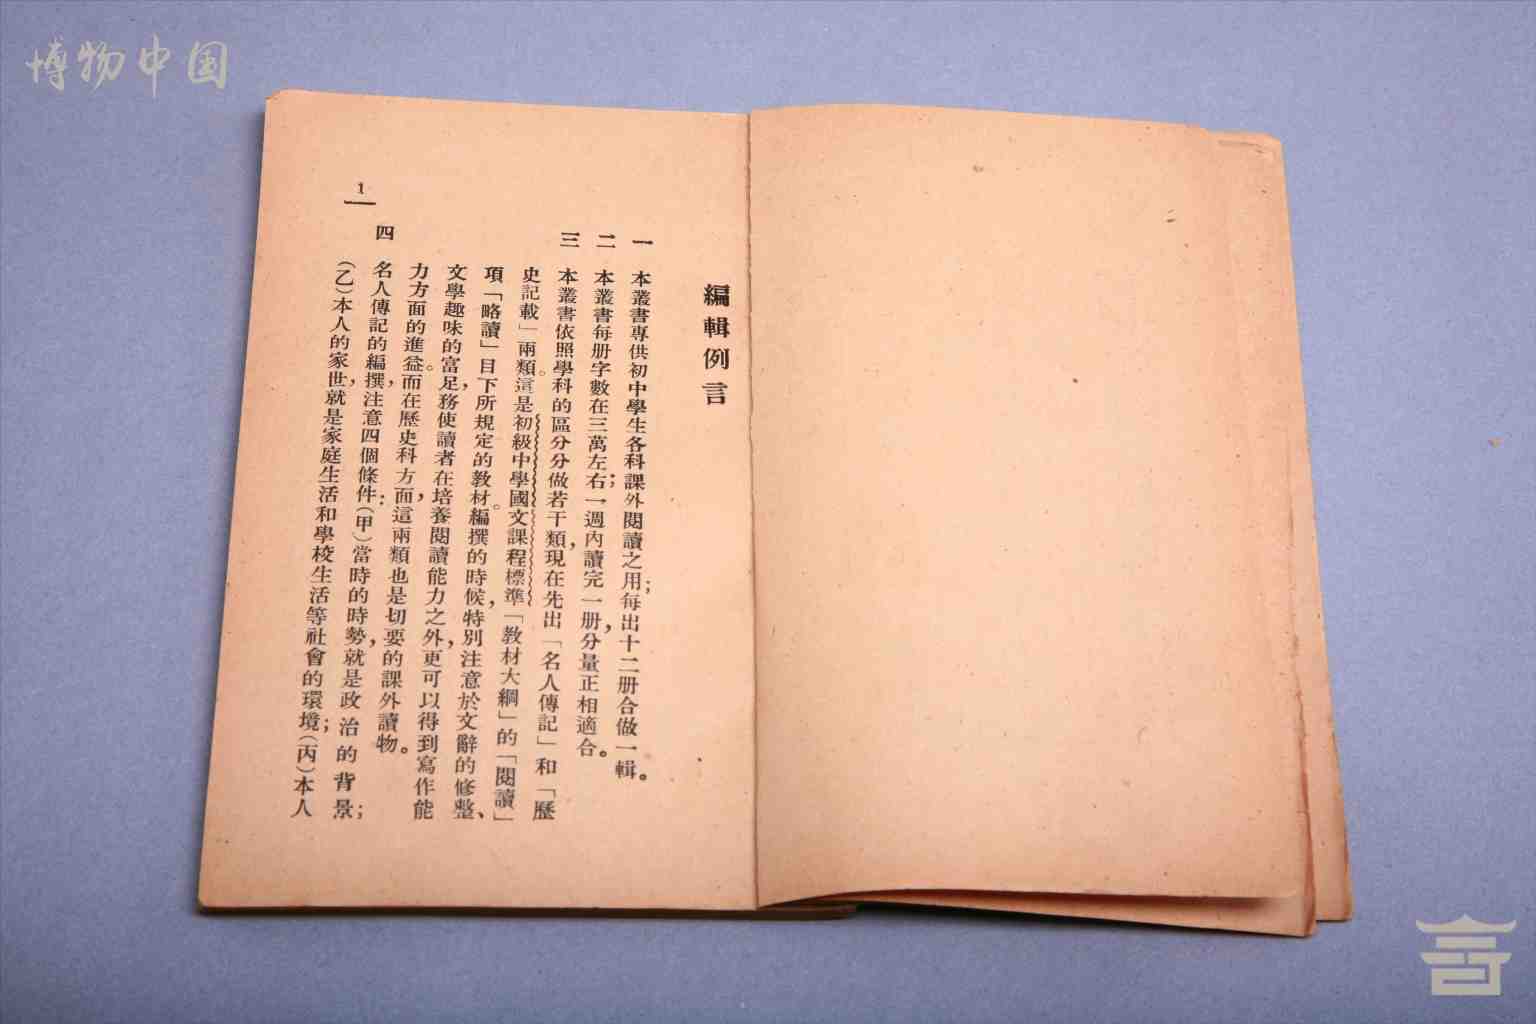 博物中国
編輯例言
一 本叢書專供初中學生各科課外閱讀之用；每出十二册合做一輯。
二 本叢書每册字數在三萬左右；一週內讀完一册，分量正相適合。
三 本叢書依照學科的區分分做若干類，現在先出「名人傳記」和「歷
史記載」兩類。這是初級中學國文課程標準「教材大綱」的「閱讀」
項「略讀」目下所規定的教材。編撰的時候，特別注意於文辭的修整、
文學趣味的富足，務使讀者在培養閱讀能力之外，更可以得到寫作能
力方面的進益。而在歷史科方面，這兩類也是切要的課外讀物。
四 名人傳記的編撰，注意四個條件：（甲）當時的時勢，就是政治的背景；
（乙）本人的家世，就是家庭生活和學校生活等社會的環境；（丙）本人
1